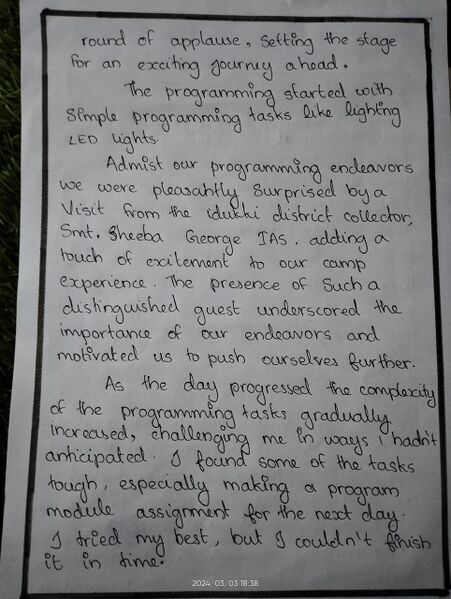 round of applause, Setting the stage
for an exciting journey ahead.
The programming started with
Simple programming tasks like lighting
LED lights.
Admist our programming endeavors
we were pleasantly Surprised by a
Visit from the idukki district collector,
Smt. Sheeba George IAS, adding a
touch of excitement to our camp
experience. The presence of Such a
distinguished guest underscored the
importance of our endeavors and
motivated us to push ourselves further.
As the day progressed the complexity
of the programming tasks gradually
increased, challenging me in ways i hadn't
anticipated. I found some of the tasks
tough, especially making a program
module assignment for the next day.
I tried my best, but I couldn't finish
it in time.
2024/03/03 18:38